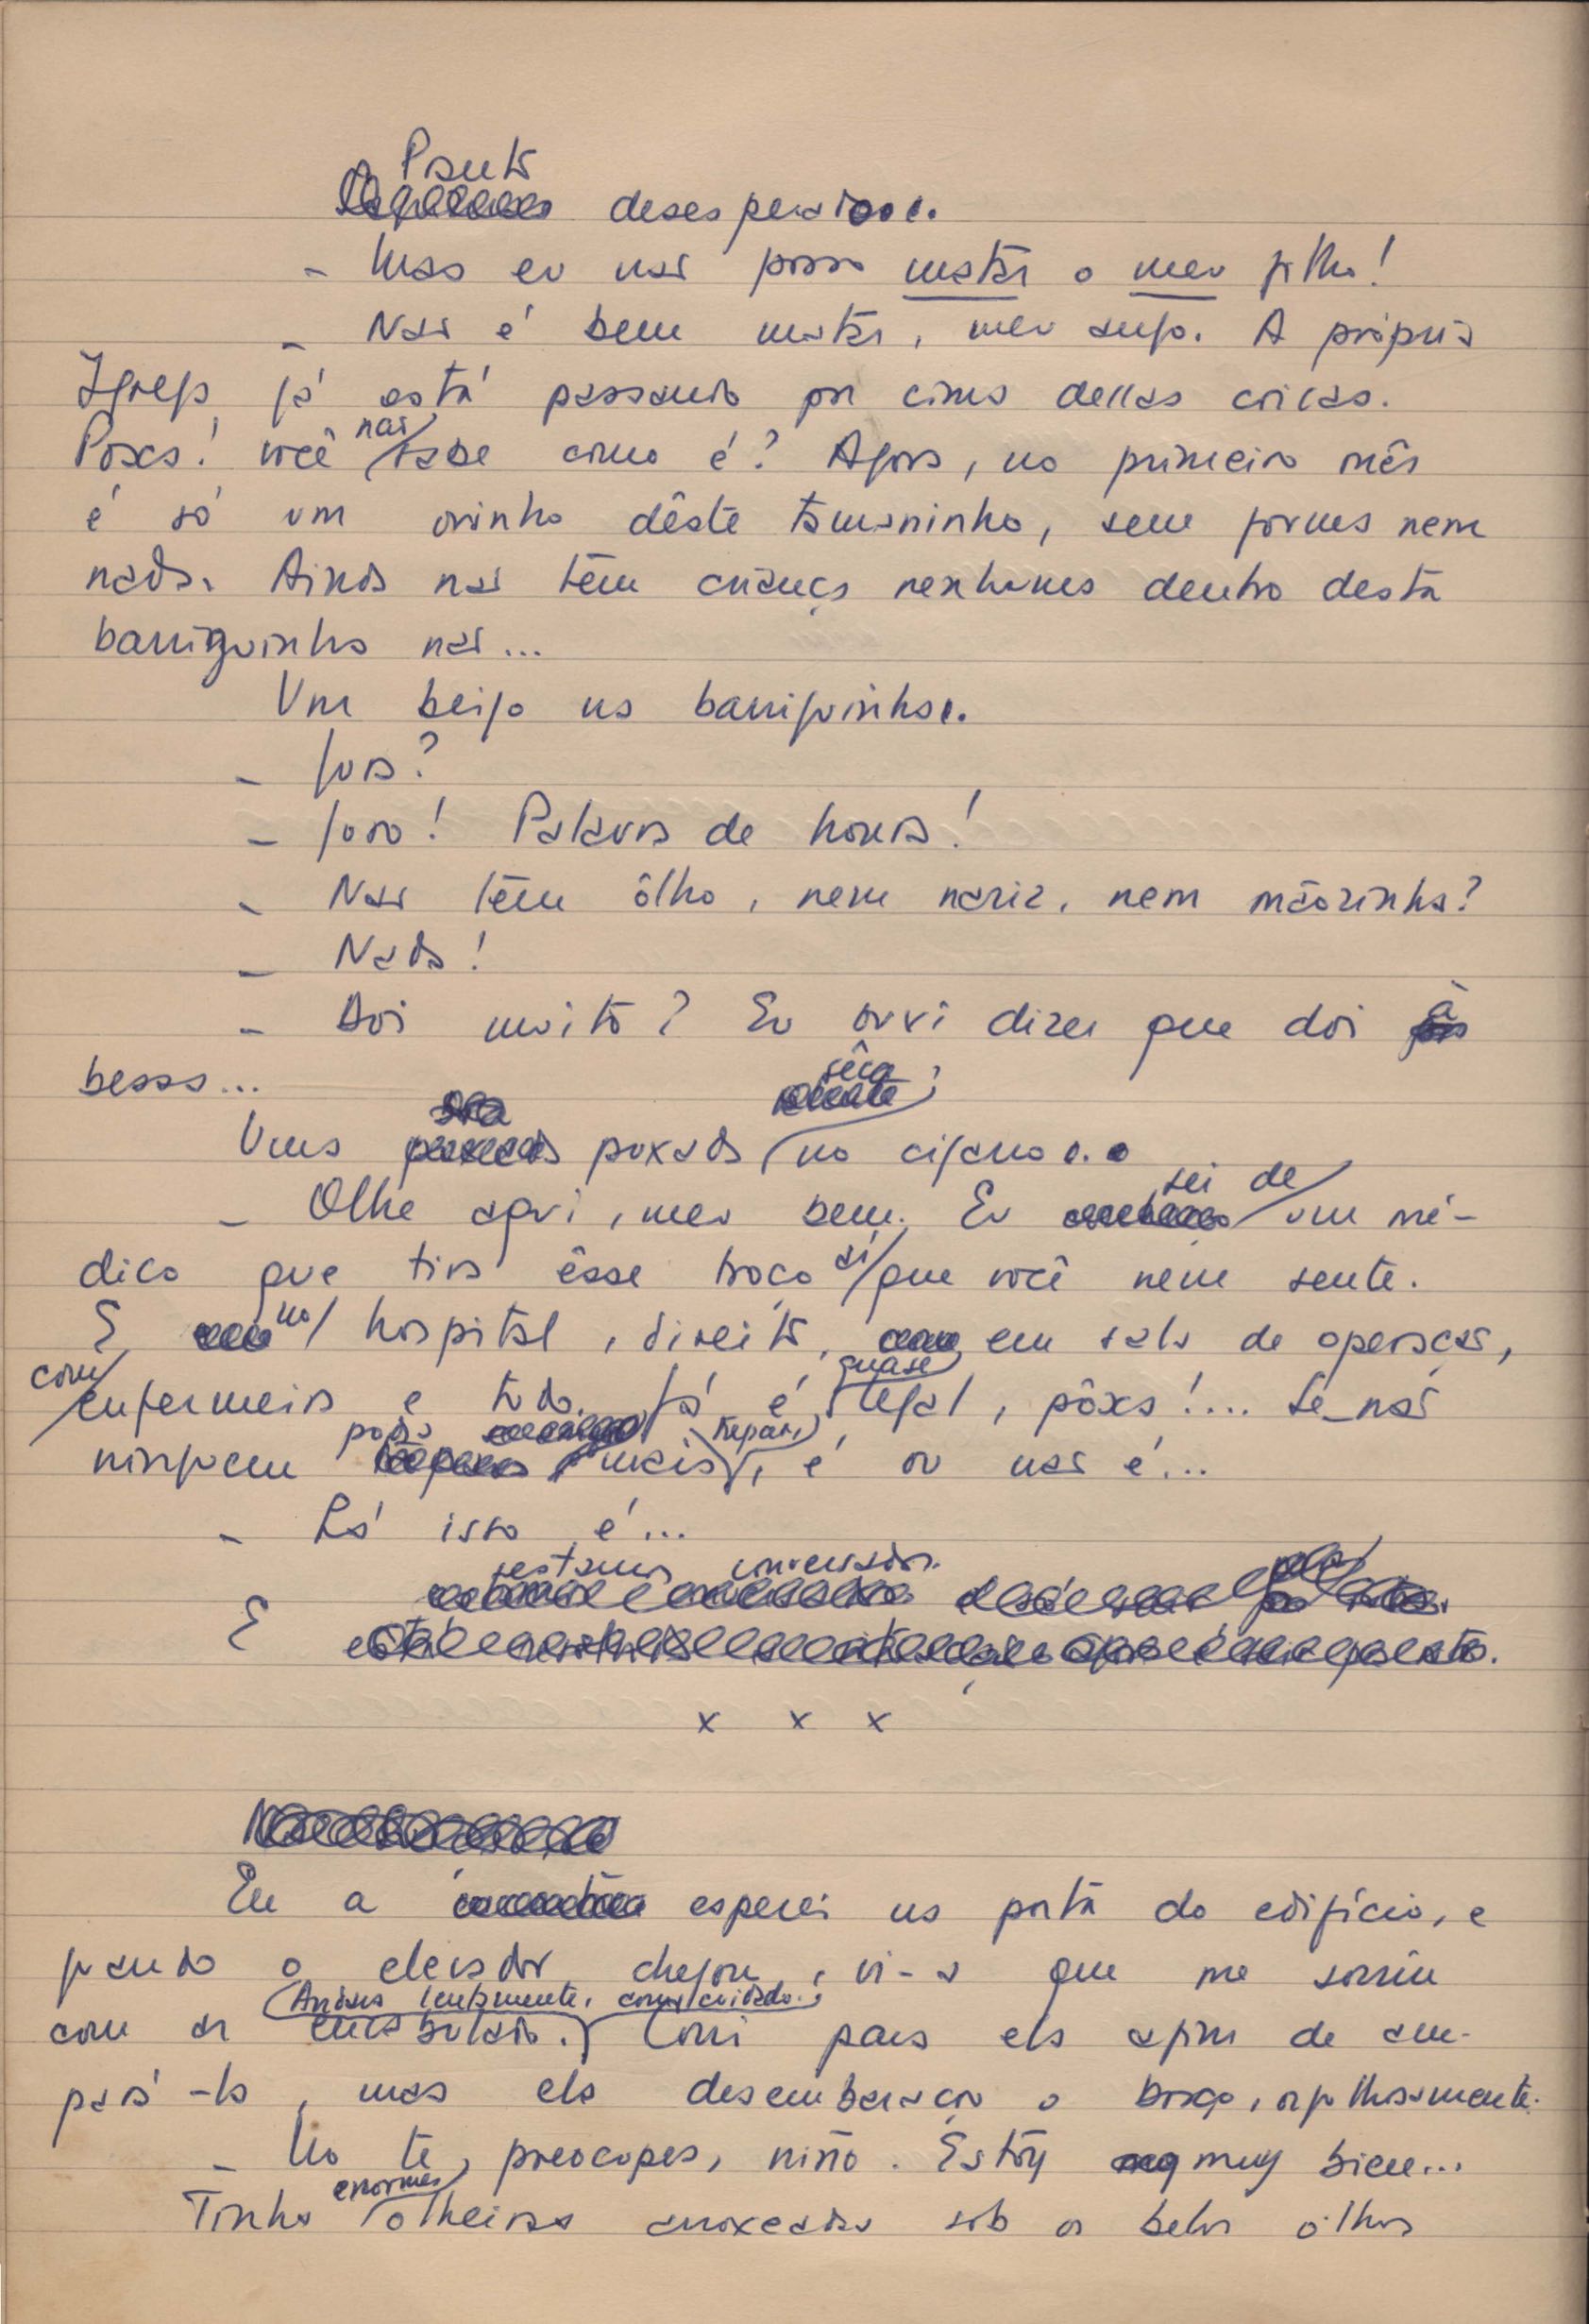 Pranto
desesperado.
- Mas eu não posso matar o meu filho!
- Não é bem matar, meu anjo. A própria
Igreja já está passando por cima dessas coisas.
não
Poxa! você sabe como é? Agora, no primeiro mês
é só um ovinho dêste tamaninho, sem forma nem
nada. Ainda não têm criança nenhuma dentro desta
barriguinha não...
Um beijo na barriguinha.
- Jura?
- Juro! Palavra de honra!
- Não têm ôlho, nem nariz, nem mãozinha?
- Nada!
- Doi muito? Eu ouvi dizer que doi à
bessa...
sêca
Uma puxada no cigarro.
sei de
- Olhe aqui, meu bem. Eu um mé-
aí
dico que tira êsse troço que você nem sente.
no
E hospital, direito, em sala de operação,
com quase
enfermeira e tudo. Já é legal, pôxa!... Se não
podia trepar,
ninguem mais, é ou não é...
- Lá isso é...
E
x x x
Eu a esperei na porta do edifício, e
quando o elevador chegou, vi-a que me sorriu
Andava lentamente, com cuidado.
com ar encabulado. Corri para ela afim de am-
pará-la, mas ela desembaraçou o braço, orgulhosamente.
- No te preocupes, niño. Estóy muy bien...
enormes
Tinha olheiras arroxeadas sob os belos olhos